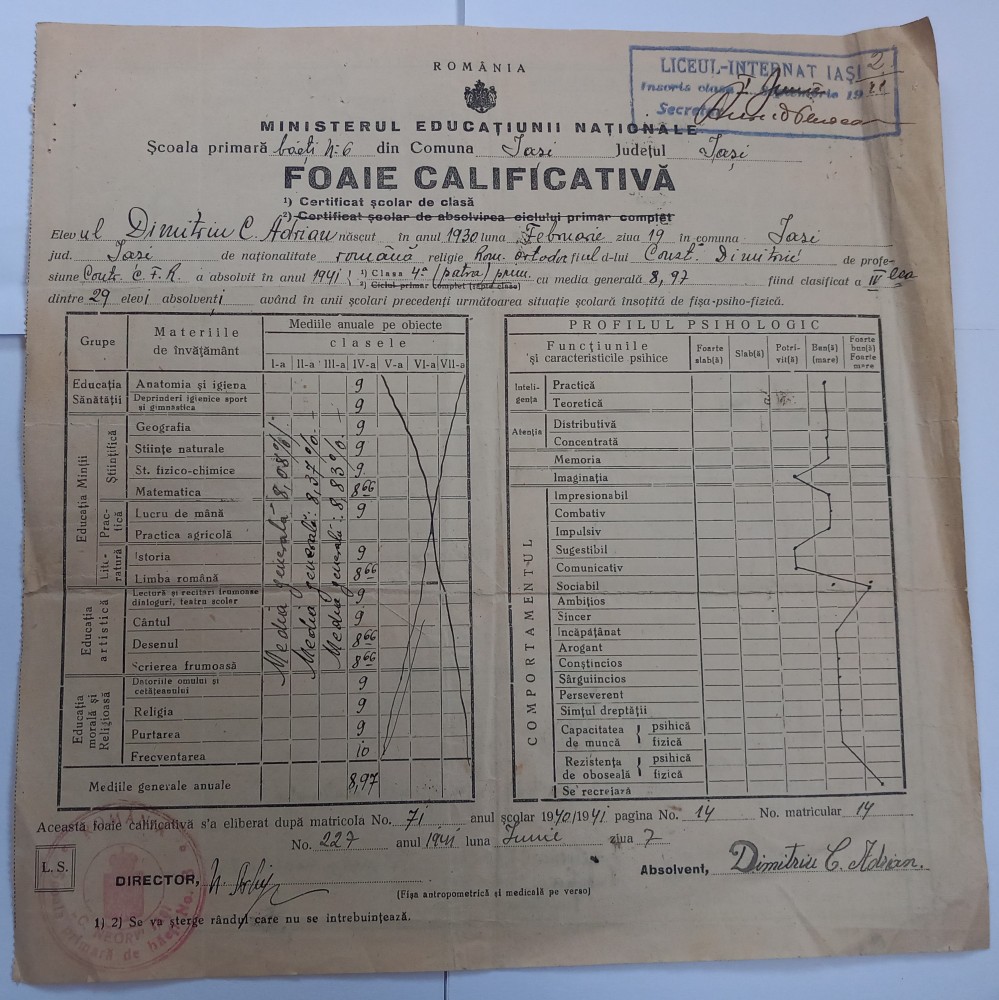 ROMÂNIA
LICEUL-INTERNAT IAȘI 2
Inscris clasa I Septembrie 19
Secretar
MINISTERUL EDUCAȚIUNII NAȚIONALE
Școala primară băeți N. 6 din Comuna Iași Județul Iași
FOAIE CALIFICATIVĂ
1) Certificat școlar de clasă
2) Certificat școlar de absolvirea ciclului primar complet
Elevul Dimitriu C. Adrian născut în anul 1930 luna Februarie ziua 19 în comuna Iași
jud. Iași de naționalitate română religie Rom. ortodox fiul d-lui Const. Dimitriu de profe-
siune Contr. C.F.R. a absolvit în anul 1941 1) Clasa 4a (patra) prim. cu media generală 8,97 fiind clasificat a IV lea
2) Ciclul primar complet (șapte clase)
dintre 29 elevi absolvenți având în anii școlari precedenți următoarea situație școlară însoțită de fișa-psiho-fizică.
Grupe Materiile de învățământ Mediile anuale pe obiecte
clasele
I-a II-a III-a IV-a V-a VI-a VII-a
Educația Sănătății
Anatomia și igiena 9
Deprinderi igienice sport și gimnastica 9
Educația Minții
Științifică
Geografia 9
Științe naturale 9
St. fizico-chimice 9
Matematica 8 66
Practică
Lucru de mână 9
Practica agricolă
Literatură
Istoria 9
Limba română 8 66
Educația artistică
Lectură și recitări frumoase dialoguri, teatru școlar 9
Cântul 9
Desenul 8 66
Scrierea frumoasă 8 66
Educația morală și Religioasă
Datoriile omului și cetățeanului 9
Religia 9
Purtarea 9
Frecventarea 10
Mediile generale anuale 8,97
Media generală 8,08%
Media generală: 8,37%.
Media generală: 8,83%.
PROFILUL PSIHOLOGIC
Funcțiunile și caracteristicile psihice Foarte slab(ă) Slab(ă) Potrivit(ă) Bun(ă) (mare) Foarte bun(ă) Foarte mare
Inteligența
Practică
Teoretică
Atenția
Distributivă
Concentrată
Memoria
Imaginația
COMPORTAMENTUL
Impresionabil
Combativ
Impulsiv
Sugestibil
Comunicativ
Sociabil
Ambițios
Sincer
Încăpățânat
Arogant
Conștincios
Sârguincios
Perseverent
Simțul dreptății
Capacitatea de muncă psihică
fizică
Rezistența de oboseală psihică
fizică
Se recrează
Această foaie calificativă s'a eliberat după matricola No. 71 anul școlar 1940/1941 pagina No. 14 No. matricular 14
No. 227 anul 1941 luna Iunie ziua 7
L. S.
DIRECTOR,
Absolvent, Dimitriu C. Adrian.
(Fișa antropometrică și medicală pe verso)
1) 2) Se va șterge rândul care nu se intrebuințează.
ROMÂNIA
primară de băeți No. 6